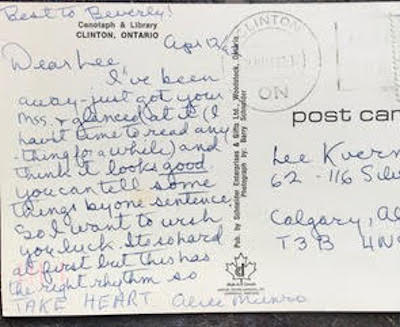 Best to Beverly!
Cenotaph & Library
CLINTON, ONTARIO
Apr 12/
Dear Lee,
I've been
away - just got your
Mss. & glanced at it (I
haven't time to read any
-thing for a while) and
think it looks good.
You can tell some
things by one sentence
So I want to wish
you luck. Its so hard
at first but this has
the right rhythm so
TAKE HEART Alice Munro
Pub. by Schneider Enterprises & Gifts Ltd., Woodstock, Ontario
Photograph by: Barry Schneider
CLINTON
ON
post car
Lee Kvern
62 -116 Silv
Calgary, Al
T3B 4N9